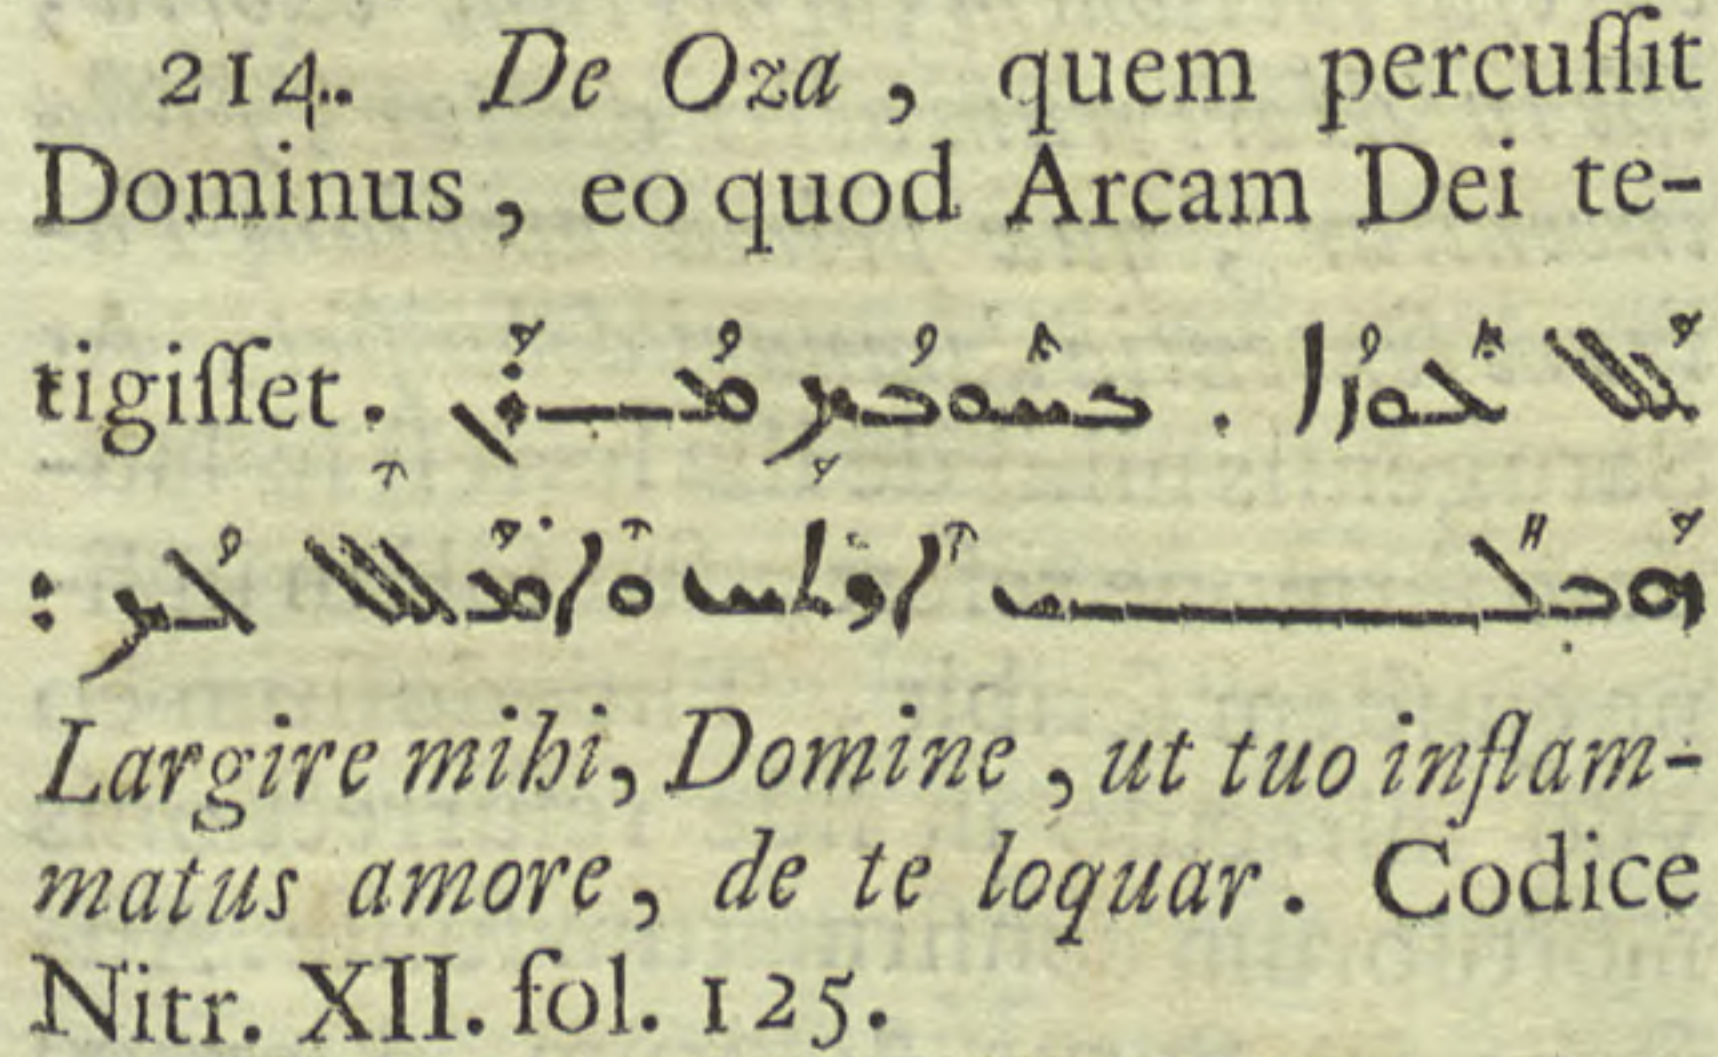 214. De Oza, quem percussit
Dominus, eo quod Arcam Dei te-
tigisset. ܥܰܠ ܥܽܘܙܳܐ . ܒܚܽܘܒܳܟ ܡܳܪܰܢ
ܗܰܒ ܠܺܝ ܐܶܪܬܰܚ ܘܶܐܡܰܠܶܠ ܠܳܟ :
Largire mihi, Domine, ut tuo inflam-
matus amore, de te loquar. Codice
Nitr. XII. fol. 125.